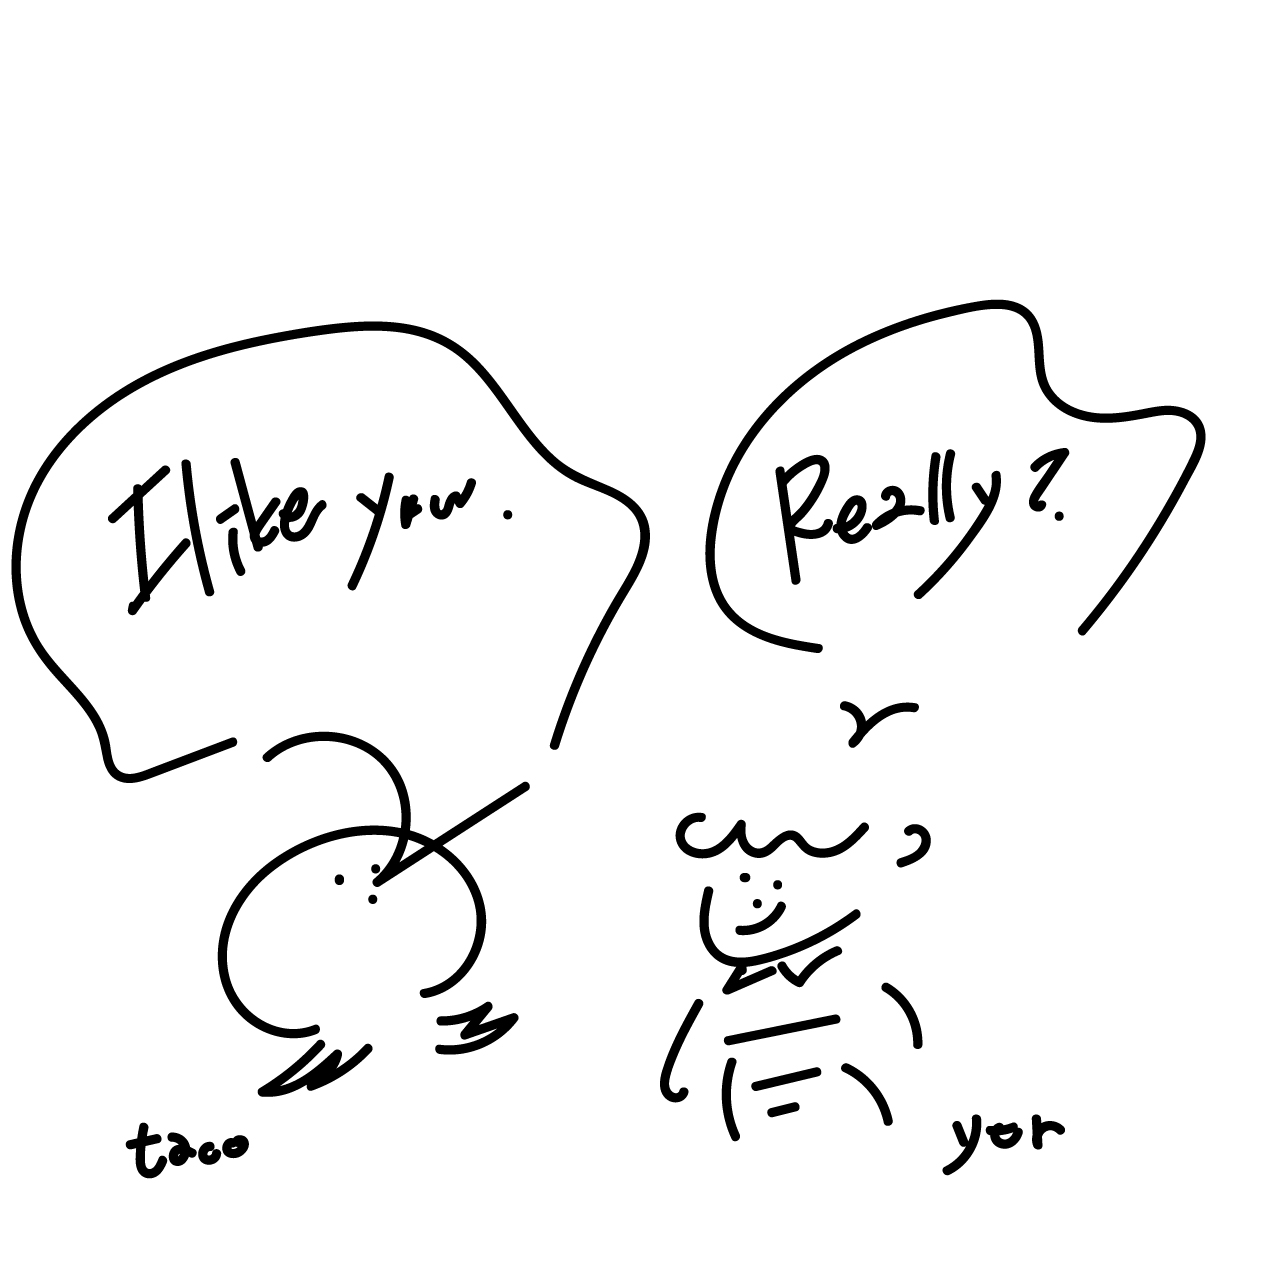 I like you.
Really?
taco
yor